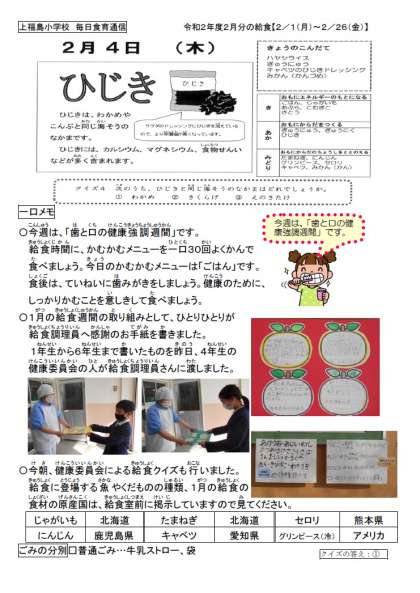 上福島小学校 毎日食育通信
令和2年度2月分の給食【2／1（月）～2／26（金）】
2月4日 （木）
きょうのこんだて
ハヤシライス
ぎゅうにゅう
キャベツのひじきドレッシング
みかん（かんづめ）
ひじき
ひじき
ひじきは、わかめや
こんぶと同じ海そうの
なかまです。
サラダのドレッシングにひじきを混ぜている
ので、より栄養価が高くなっています。
ひじきには、カルシウム、マグネシウム、食物せんい
などが多く含まれます。
き
おもにエネルギーのもとになる
ごはん、じゃがいも
あぶら、こむぎこ
さとう
あか
おもにからだをつくる
ぎゅうにゅう、ぎゅうにく
ひじき
みどり
おもにからだのちょうしをととのえる
たまねぎ、にんじん
グリンピース、セロリ
キャベツ、みかん（かん）
クイズ4 次のうち、ひじきと同じ海そうのなかまはどれでしょうか。
① わかめ ② きくらげ ③ えのきたけ
一口メモ
○今週は、「歯と口の健康強調週間」です。
給食時間に、かむかむメニューを一口30回よくかんで
食べましょう。今日のかむかむメニューは「ごはん」です。
食後は、ていねいに歯みがきをしましょう。健康のために、
しっかりかむことを意しきして食べましょう。
今週は、「歯と口の健
康強調週間」です。
○1月の給食週間の取り組みとして、ひとりひとりが
給食調理員へ感謝のお手紙を書きました。
1年生から6年生まで書いたものを昨日、4年生の
健康委員会の人が給食調理員さんに渡しました。
○今朝、健康委員会による給食クイズも行いました。
給食に登場する魚やくだものの種類、1月の給食の
食材の原産国は、給食室前に掲示していますので見てください。
じゃがいも 北海道 たまねぎ 北海道 セロリ 熊本県
にんじん 鹿児島県 キャベツ 愛知県 グリンピース（冷） アメリカ
ごみの分別 □普通ごみ…牛乳ストロー、袋
クイズの答え：①